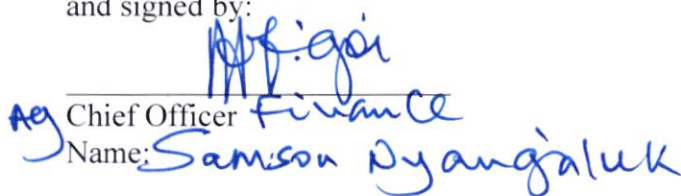 and signed by:
Ag Chief Officer Finance
Name: Samson Nyang'aluk